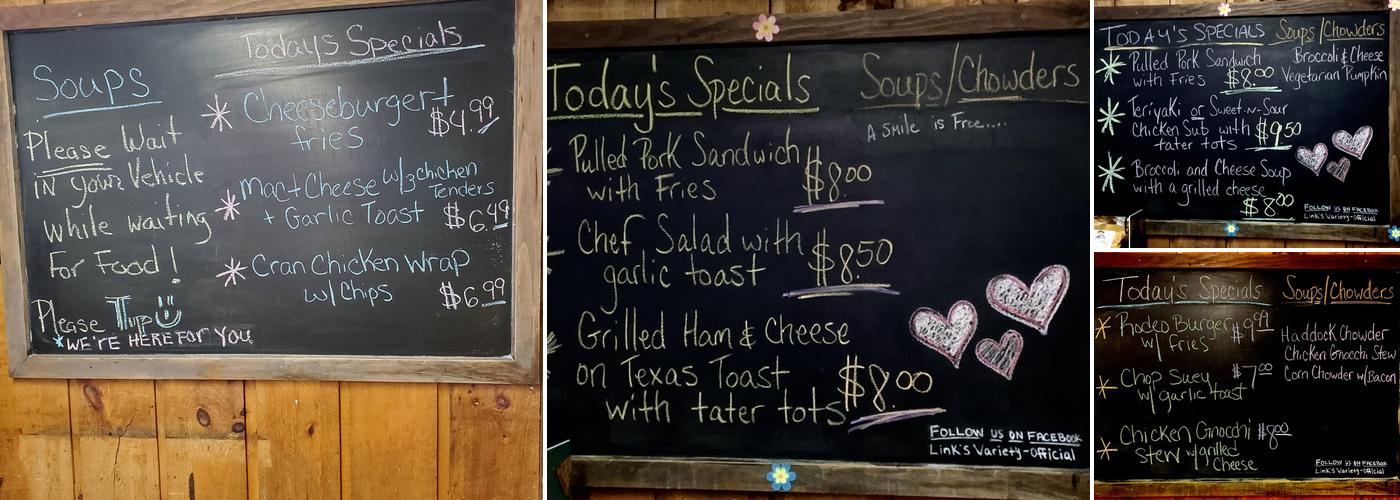 Today's Specials
Soups
Cheeseburger +
fries
$4.99
Please Wait
in your Vehicle
while waiting
for Food!
Mac + Cheese w/3 chicken
Tenders
+ Garlic Toast $6.49
Cran Chicken Wrap
w/ Chips $6.99
Please Tip
*WE'RE HERE FOR YOU
Today's Specials
Soups/Chowders
A Smile is Free....
Pulled Pork Sandwich
with Fries
$8.00
Chef Salad with
garlic toast
$8.50
Grilled Ham & Cheese
on Texas Toast
with tater tots
$8.00
FOLLOW US ON FACEBOOK
Link's Variety-Official
TODAY'S SPECIALS
Soups/Chowders
Pulled Pork Sandwich
with Fries $8.00
Broccoli & Cheese
Vegetarian Pumpkin
Teriyaki or Sweet-n-Sour
Chicken Sub with $9.50
tater tots
Broccoli and Cheese Soup
with a grilled cheese
$8.00
FOLLOW US ON FACEBOOK
Link's Variety-Official
Today's Specials
Soups/Chowders
Rodeo Burger $9.99
w/ fries
Haddock Chowder
Chicken Gnocchi Stew
Corn Chowder w/Bacon
Chop Suey $7.00
w/ garlic toast
Chicken Gnocchi $8.00
Stew w/grilled
Cheese
FOLLOW US ON FACEBOOK
Link's Variety-Official